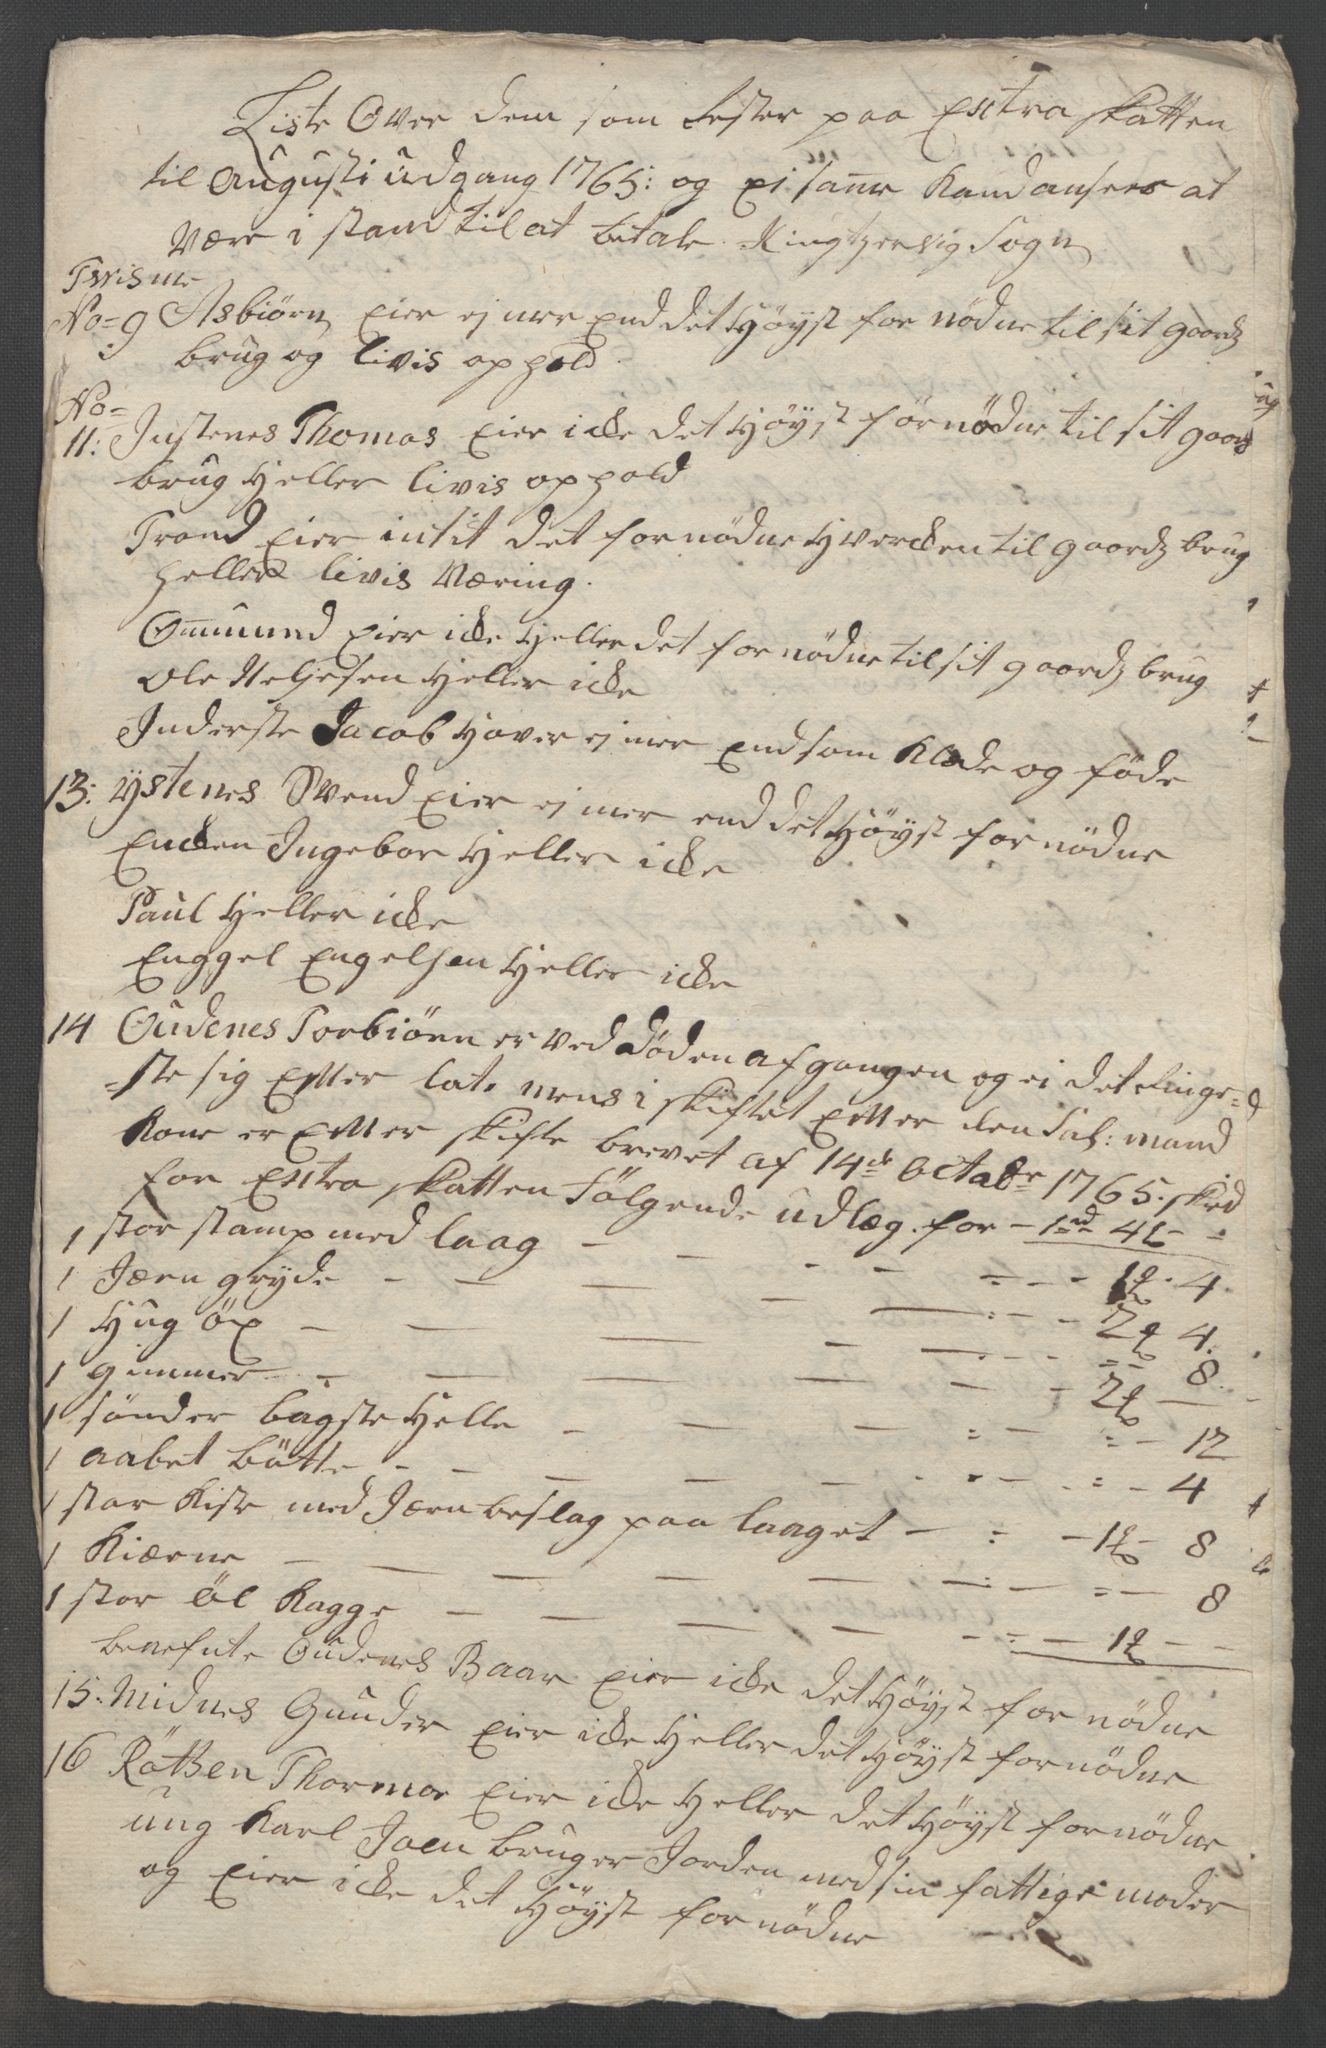 Liste Over dem som Rester paa Extra skatten
til Augusti udgang 1765: og ei same kand ansees at
være i stand til at betale. Kingtzervig Sogn
Twisme
No= 9 Asbiørn Eier ej mer End det Høyst for nødne til sit gaardz
brug og livis op hold
No=
11: Justenes Thomas Eier icke det Høyst før nødne til sit gaardz
brug Heller livis op hold
Trond Eier intit det for nødne Hvercken til gaardz brug
heller livis Næring.
Omund Eier icke Heller det for nødne til sit gaardz brug
Ole Heljesen Heller icke
Inderste Jacob Haver ej mer End som Klæde og føde
13: Ystenes Svend Eier ej mer end det Høyst for nødne
Encken Ingebor Heller icke
Paul Heller icke
Enggel Engelsen Heller icke
14 Oudenes Torbiörn er ved Döden af gangen og ei det Ringe=
ste sig Etter lat. mens i skiftet Etter den Sal: mand
Kone er Etter skifte brevet af 14de Octobr 1765. skeed
for Extra skatten følgende udlæg. for - 1rd 4 - -
1 stor stamp med laag - - - - - 1 - 4
1 Jærn gryde - - - - - 2 4
1 Hug öx - - - - - 8
1 gimmer - - - - - 2 -
1 sönder bagste Helle - - - - 12
1 aabet bötte - - - - - 4
1 stor Kiste med Jærn beslag paa laaget - 1 - 8
1 Kiærne - - - - - 8
1 stor öl Kagge - - - - - 1 - -
benefnte Oudenes Baar Eier icke det Høyst for nødne
15: Midnes Gunder Eier icke Heller det Høyst for nødne
16 Rötzen Thormor Eier icke Heller det Høyst for nødne
ung Karl Joen bruger Jorden med sin fattige moder
og Eier icke det Höyst for nødne